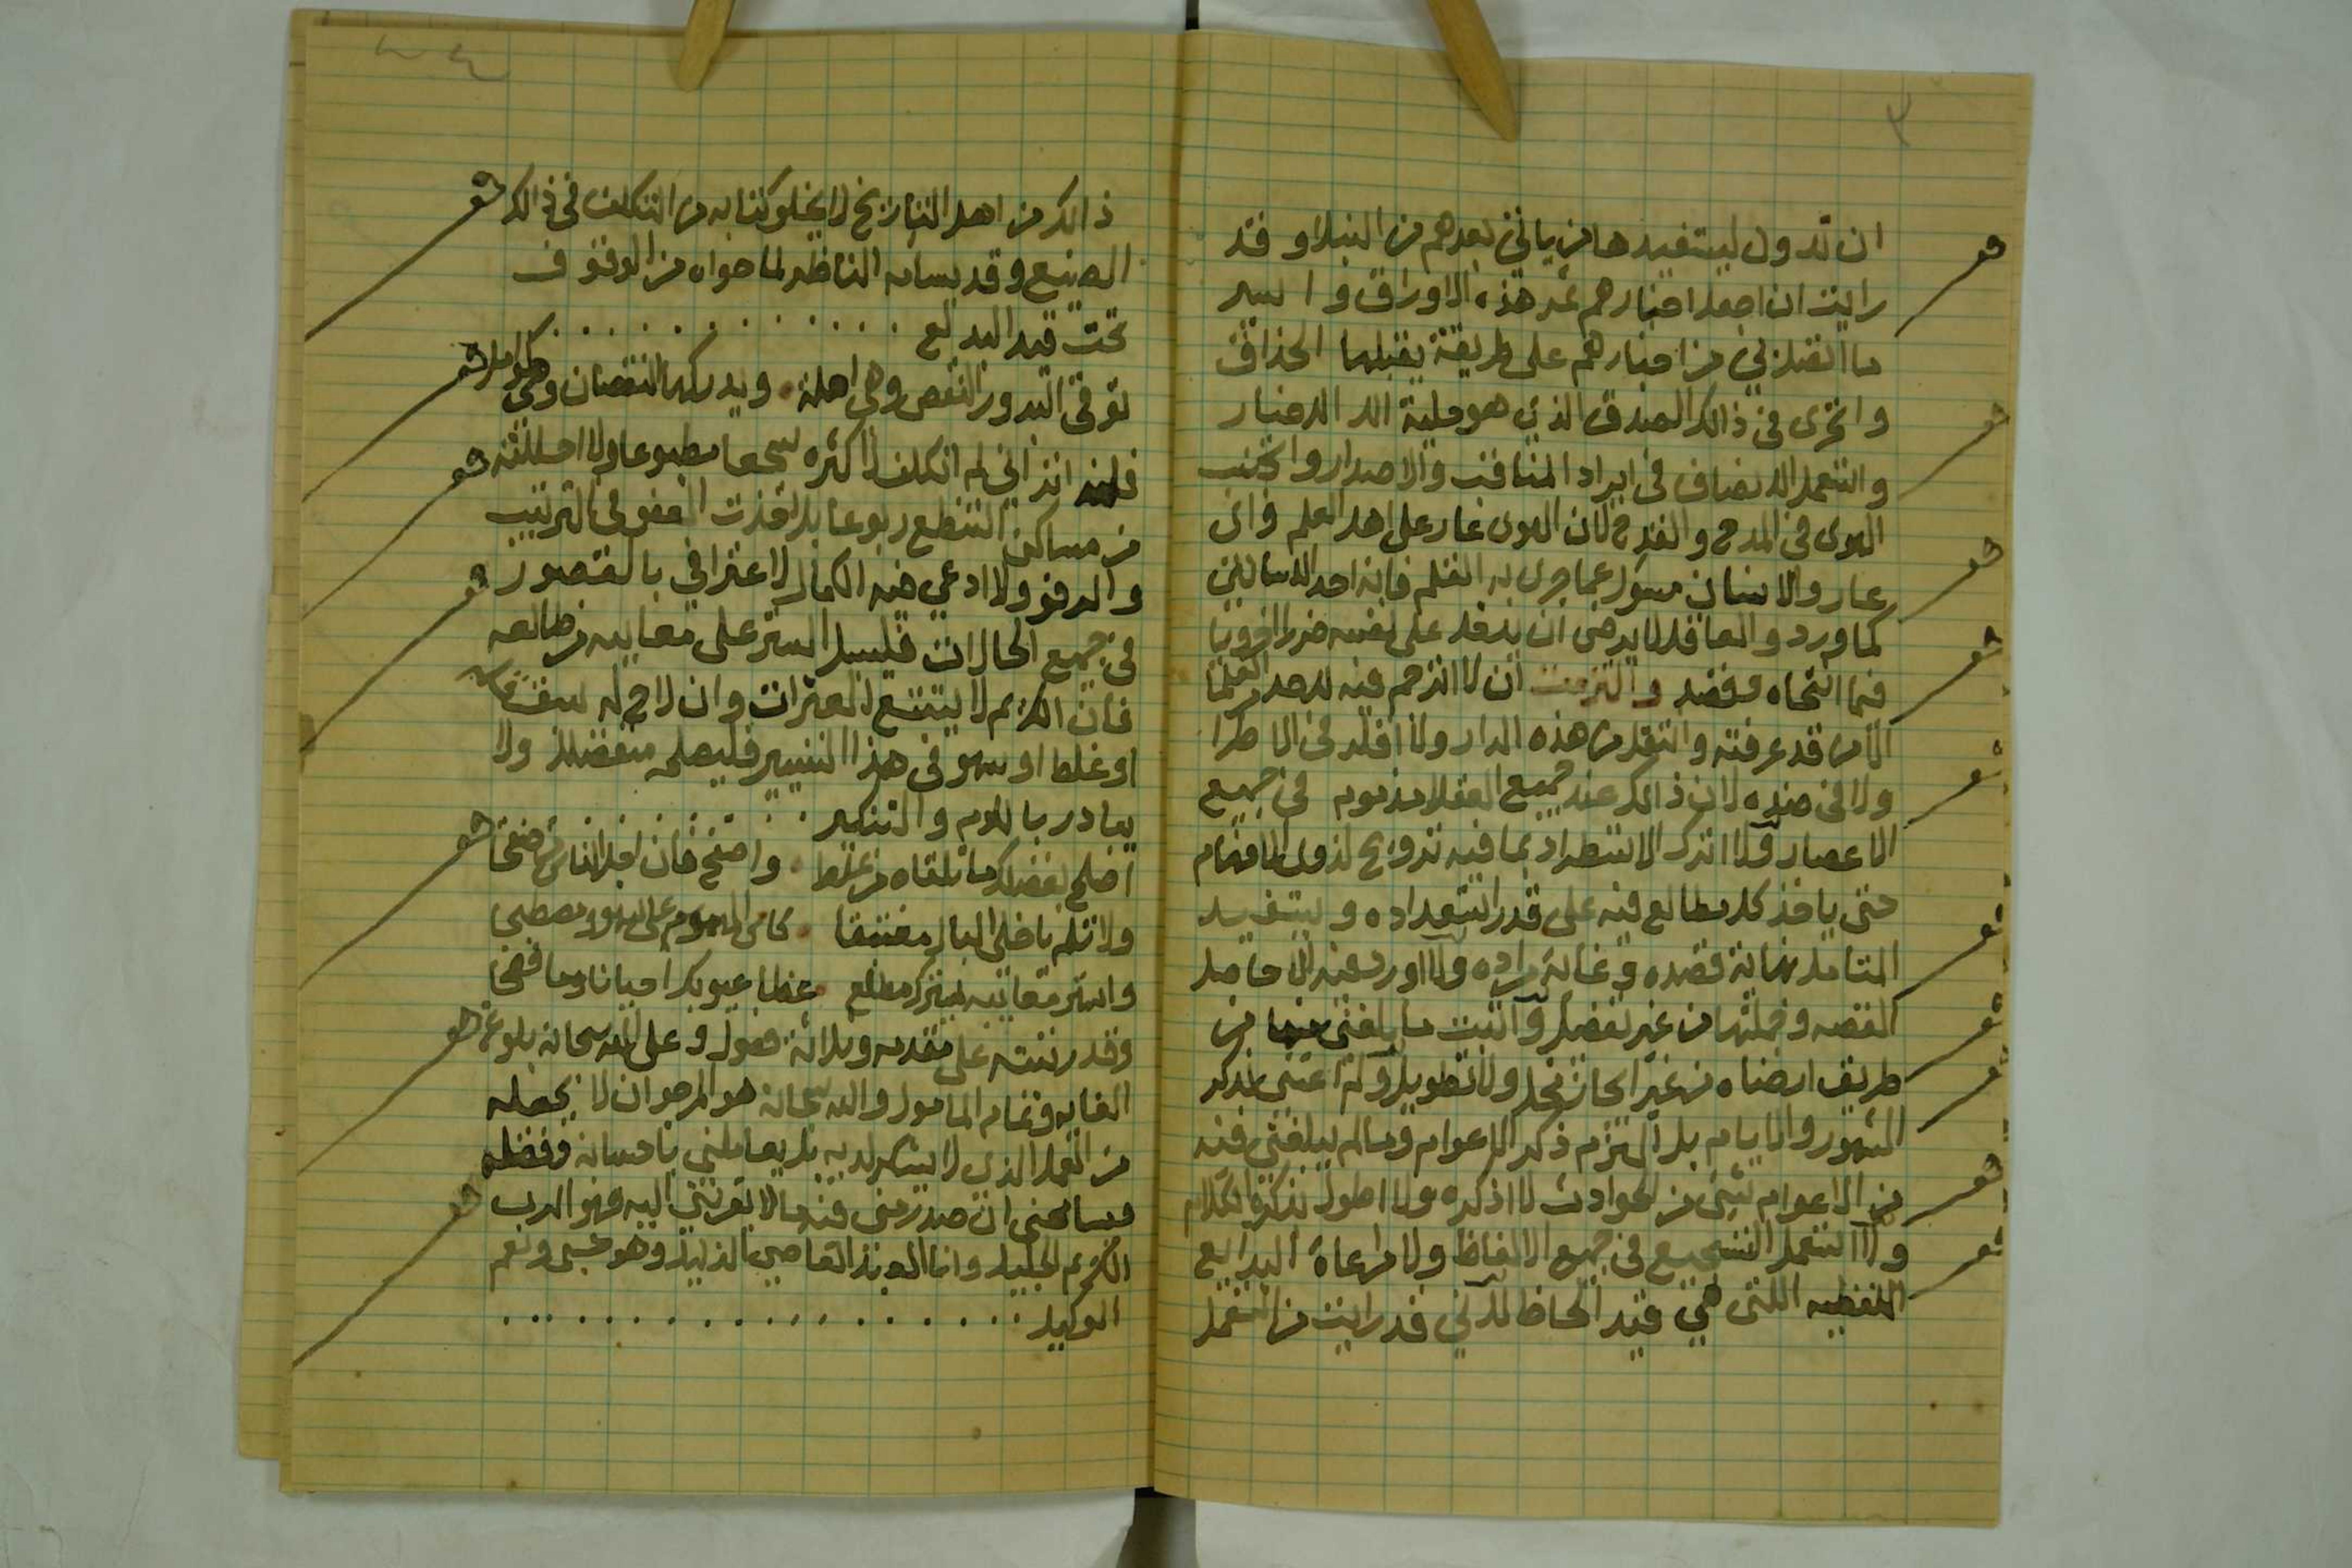 ٣
ان تدون ليستفيدها من ياتي بعدهم من النبلا و قد
رايت ان اجعل اخبارهم ثمر هذه الاوراق و اسير
ما اتصل بي من اخبارهم على طريقة يقبلها الحذاق
و اتحرى في ذالك الصدق الذي هو حلية الاخبار
و استعمل الانصاف في ايراد المناقب والاصدار و اتجنب
الهوى في المدح و القدح لان الهوى عار على اهل العلم و اي
عار والانسان مسؤل عما جرى به القلم فانه احد اللسانين
كما ورد و العاقل لا يرضى ان يدخل على نفسه ضررا اخرويا
فيما انتحاه و قصد و التزمت ان لا اترجم فيه لاحد العلما
الا من قد عرفته و انتقل من هذه الدار ولا اغلو في الاطرا
ولا في ضده لان ذالك عند جميع العقلا مذموم في جميع
الاعصار ولا اترك الاستطراد بما فيه ترويح لذوي الافهام
حتى ياخذ كل مطالع فيه على قدر استعداده و يستفيد
المتامل نهاية قصده و غاية مراده ولا اورد غير الا حاصل
القصه و جملتها من غير تفصيل و اثبت ما بلغني من
طريق ارضاه من غير ايجاز مخل ولا تطويل و لم اعتني بذكر
الشهور والايام بل التزم ذكر الاعوام و مالم يبلغني فيه
من الاعوام شيئ من الحوادث لا اذكره ولا اطول بذكره الكلام
ولا استعمل التسجيع في جميع الالفاظ ولا مراعاة البدايع
اللفظيه اللتي هي قيد الحاظ لآني قد رايت من استعمل
ذالك من اهل التاريخ لا يخلو كتابه من التكلف في ذالك
الصنيع و قد يسامه الناظر لما حواه من الوقوف
تحت قيد البديع
توقى البدور النقص وهي اهلة ويدركها النقصان وهي كوامل
فلهذا اني لم اتكلف لاكثره سجعا مطبوعا ولا احللته
من مساكن التنطع ربوعا بل اخذت العفو في الترتيب
و الرفو ولا ادعي فيه الكمال لاعترافي بالقصور
في جميع الحالات فليسبل الستر على معايبه من طالعه
فان الكريم لا يتتبع العثرات وان لاح له سقطات
او غلط او سهو في هذا التسيير فليصلحه متفضلا ولا
يبادر باللوم و التنكير
اصلح بفضلك ما تلقاه من غلط واصفح فان اجل الناس من صفحا
ولا تلم يا خلي البال مغتبقا كاس الهموم على البلوى ومصطبحا
واستر معائبه بستركم مطلع غطا عيوبك احيانا وما فضحا
وقد رتبته على مقدمه و ثلاثة فصول و على الله سبحانه بلوغ
الغايه و تمام المامول و الله سبحانه هو المرجو ان لا يجعله
من العمل الذي لا يشكر لديه بل يعاملني باحسانه و فضله
مسامحني ان صدر مني فيه ما لا يقربني اليه فهو الرب
الكريم الجليل وانا العبد العاصي الذليل وهو حسبي ونعم
الوكيل